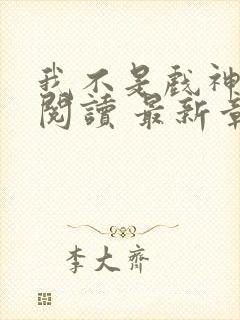 我不是戲神
閱讀 最新章
李大齊